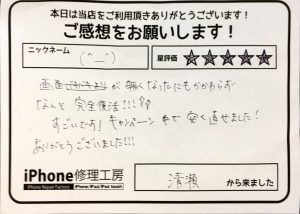 本日は当店をご利用頂きありがとうございます!
ご感想をお願いします!
ニックネーム
(^_^)
星評価
★★★★★
画面が無くなったにもかかわらず
なんと完全復活!!!
すごいです! キャンペーン中で安く直せました!
ありがとうございました!!!
iPhone修理工房
iPhone Repair Factory
iPhone/iPad/iPod touch
清瀬
から来ました